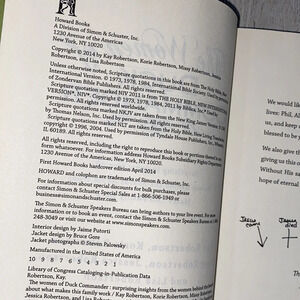 Howard Books
A Division of Simon & Schuster, Inc.
1230 Avenue of the Americas
New York, NY 10020
Copyright © 2014 by Kay Robertson, Korie Robertson, Missy Robertson, Jessica
Robertson, and Lisa Robertson
Unless otherwise noted, Scripture quotations in this book are from The Holy Bible, New
International Version. © 1973, 1978, 1984, 2011
of Zondervan Bible Publishers. All rights reserved.
Scripture quotations marked NIV 2011 is from THE HOLY BIBLE, NEW INTERNATIONAL
VERSION®, NIV®. Copyright © 1973, 1978, 1984, 2011 by Biblica, Inc.® Used by
permission. All rights reserved worldwide.
Scripture quotations marked NKJV are taken from the New King James Version
by Thomas Nelson, Inc. Used by permission. All rights reserved.
Scripture quotations marked NLT are taken from the Holy Bible, New Living Translation,
copyright © 1996, 2004. Used by permission of Tyndale House Publishers, Inc.,
IL 60189. All rights reserved.
All rights reserved, including the right to reproduce this book or portions thereof in any
form whatsoever. For information address Howard Books Subsidiary Rights Department,
1230 Avenue of the Americas, New York, NY 10020.
First Howard Books hardcover edition April 2014
HOWARD and colophon are trademarks of Simon & Schuster, Inc.
For information about special discounts for bulk purchases, please
contact Simon & Schuster Special Sales at 1-866-506-1949 or
business@simonandschuster.com.
The Simon & Schuster Speakers Bureau can bring authors to your live event. For more
information or to book an event, contact the Simon & Schuster Speakers Bureau at
248-3049 or visit our website at www.simonspeakers.com.
Interior design by Jaime Putorti
Jacket design by Bruce Gore
Jacket photographs © Steven Palowsky
Manufactured in the United States of America
10 9 8 7 6 5 4 3 2 1
Library of Congress Cataloging-in-Publication Data
Robertson, Kay.
The women of Duck Commander : surprising insights from the women behind the beards
about what makes this family work / Kay Robertson, Korie Robertson, Missy
Jessica Robertson, and Lisa Robertson
We would
lives: Phil, Al
us, and keep
blessed to be
We also give th
giving us this
Without His sa
hope of eternal
Jesus
came
Jesus
died